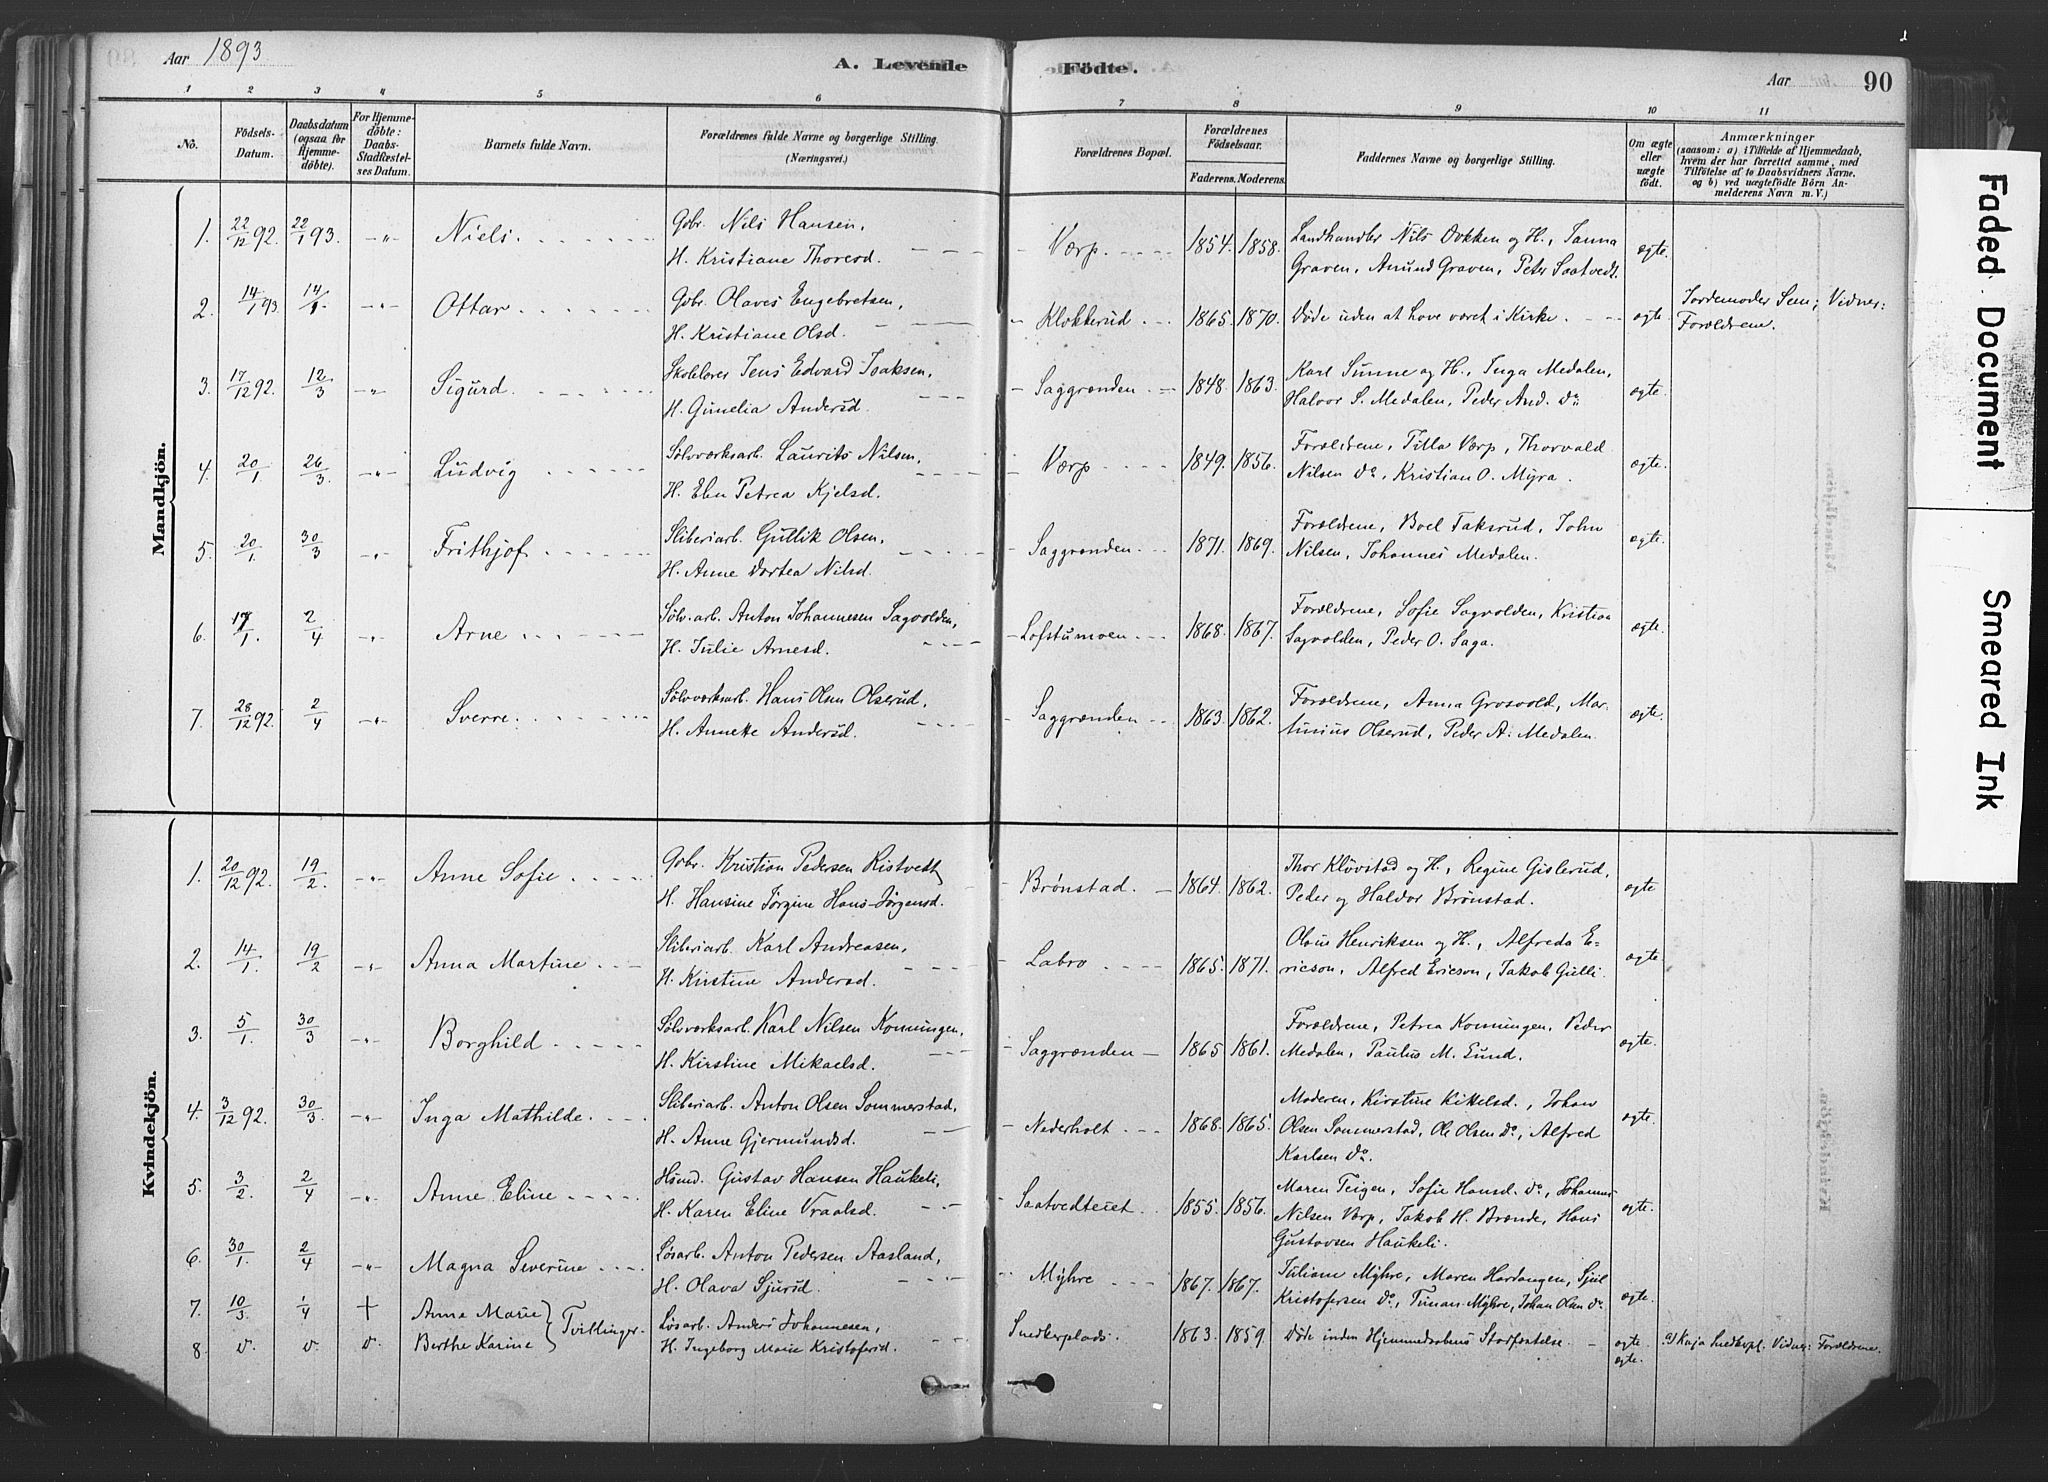 Aar 1893
A. Levende Födte.
Aar
90
1 2 3 4 5 6 7 8 9 10 11
No.
Födsels-Datum.
Daabsdatum (ogsaa for Hjemme-döbte).
For Hjemme-döbte: Daabs-Stadfæstel-ses Datum.
Barnets fulde Navn.
Forældrenes fulde Navne og borgerlige Stilling. (Næringsvei.)
Forældrenes Bopæl.
Forældrenes Födselsaar.
Faderens. Moderens.
Faddernes Navne og borgerlige Stilling.
Om ægte eller uægte födt.
Anmærkninger
(saasom: a) i Tilfælde af Hjemmedaab,
hvem der har forrettet samme, med
Tilföielse af to Daabsvidners Navne,
og b) ved uægtefödte Börn An-
melderens Navn m. V.)
Mandkjön.
1. 22/12 92. 22/1 93. -"- Niels. Gbr. Nils Hansen, Værp. 1854. 1858. Landhandler Nils Bokken og H., Tanna ægte.
H. Kristiane Thoresd. Graven, Amund Graven, Peter Saatvedt.
2. 14/1 93. 14/1. -"- Ottar Gbr. Olaves Engebretsen, Klokkerud 1865. 1870. Døde uden at have været i Kirke. ægte. Jordemoder Sem; Vidner:
H. Kristiane Olsd. Forældrene.
3. 17/12 92. 12/3 -"- Sigurd. Skolelærer Jens Edvard Isaksen, Saggrenden 1848. 1863. Karl Sunne og H., Inga Medalen, ægte.
H. Gunelia Andersd. Halvor S. Medalen, Peder And. do.
4. 20/1 26/3 -"- Ludvig Sølvværksarb. Laurits Nilsen, Værp 1849. 1856. Forældrene, Tilla Værp, Thorvald ægte.
H. Elen Petrea Kjelsd. Nilsen do, Kristian O. Myra.
5. 20/1. 30/3 -"- Frithjof. Sliberiarb. Gullik Olsen, Saggrenden. 1871. 1869. Forældrene, Boel Taksrud, John ægte.
H. Anne Dortea Nilsd. Nilsen, Johannes Medalen.
6. 17/1. 2/4 -"- Arne Sølv.arb. Anton Johannesen Sagvolden, Lofstumoen 1868. 1867. Forældrene, Sofie Sagvolden, Kristian ægte.
H. Julie Arnesd. Sagvolden, Peder O. Saga.
7. 28/12 92. 2/4 -"- Sverre. Sølvværksarb. Hans Olsen Olserud, Saggrenden 1863. 1862. Forældrene, Anna Grosvold, Mar- ægte.
H. Annette Andersd. tinius Olserud, Peder A. Medalen.
Kvindekjön.
1. 20/12 92. 19/2. -"- Anne Sofie Gbr. Kristian Pedersen Ristvedt Brønstad. 1864. 1862. Thor Kløvstad og H., Regine Gislerud, ægte
H. Hansine Jørgine Hans-Jørgensd. Peder og Haldor Brønstad.
2. 14/1. 19/2 -"- Anna Martine Sliberiarb. Karl Andreasen, Labro 1865. 1871. Olaus Henriksen og H., Alfreda E- ægte.
H. Kirstine Andersd. ricson, Alfred Ericson, Jakob Gulli.
3. 5/1. 30/3 -"- Borghild Sølvværksarb. Karl Nilsen Konningen, Saggrenden 1865 1861. Forældrene, Petrea Konningen, Peder ægte.
H. Kirstine Mikaelsd. Medalen, Paulus M. Eund.
4. 3/12 92. 30/3. -"- Inga Mathilde. Sliberiarb. Anton Olsen Sommerstad, Nederholt 1868. 1865. Moderen, Kirstine Kittelsd., Johan ægte.
H. Anne Gjermundsd. Olsen Sommerstad, Ole Olsen do, Alfred
Karlsen do.
5. 3/2. 2/4 -"- Anne Eline Husmd. Gustav Hansen Haukeli, Saatvedteiet 1855. 1856. Maren Teigen, Sofie Hansd. do, Johannes ægte.
H. Karen Eline Vraalsd. Nilsen Værp, Jakob H. Brænde, Hans
Gustavsen Haukeli.
6. 30/1. 2/4 -"- Magna Severine Løsarb. Anton Pedersen Aasland, Myhre 1867. 1867. Juliane Myhre, Maren Hardangen, Sjul ægte.
H. Olava Sjursd. Kristofersen do, Tinan Myhre, Johan Olsen do.
7. 10/3. 1/4 + Anne Marie } Tvillinger. Løsarb. Anders Johannesen, Snekkerplads. 1863. 1859. Døde inden Hjemmedaabens Stadfæstelse. ægte
8. d. d. d. Berthe Karine H. Ingeborg Marie Kristofersd. ægte. a) Kaja Snedkerpl. Vidner: Forældrene.
Faded Document Smeared Ink